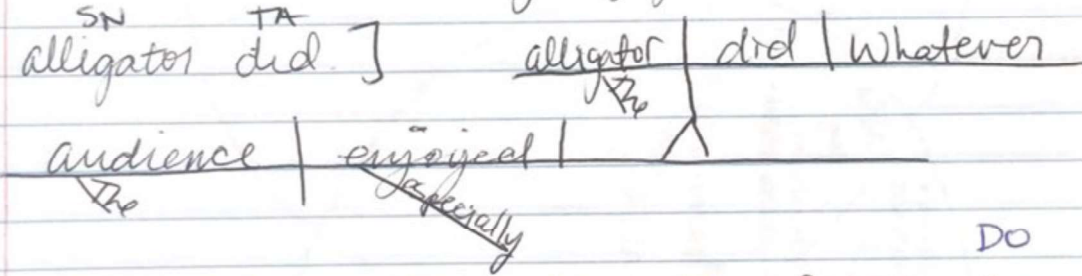 SN TA
alligator did. ]
alligator | did | Whatever
The
audience | enjoyed |
The
especially
DO